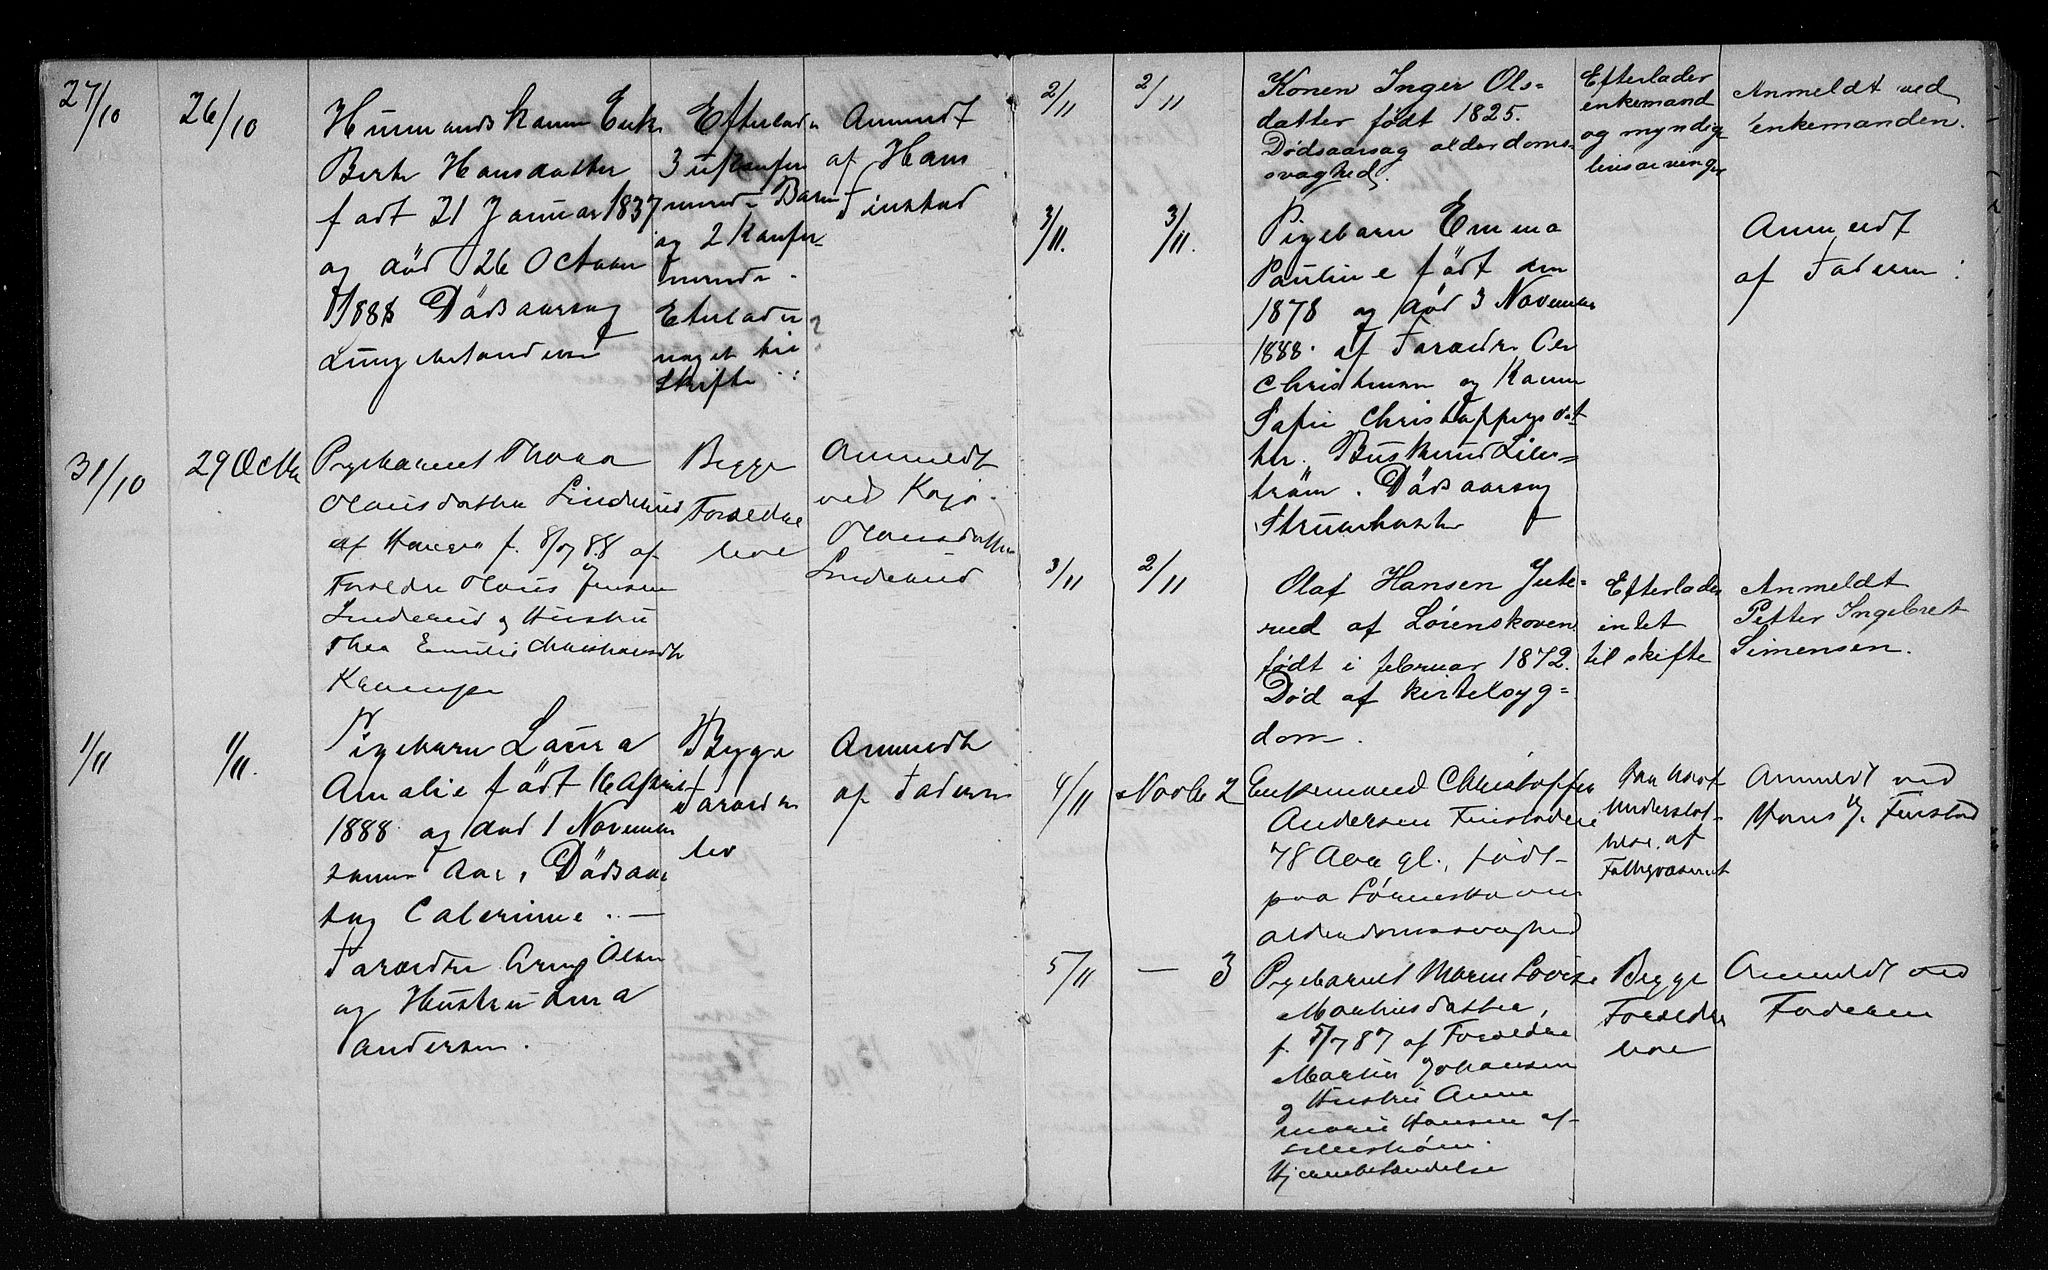 27/10
26/10
Husmandskonen Enke
Berte Hansdatter
født 21 Januar 1837
og død 26 October
1888 Dødsaarsag
Lungebetændelse
Efterlader
3 ukonfir
merede Børn
og 2 Konfir-
merede.
Eterlader
noget til
Skifte.
Anmeldt
af Hans
Finstad
31/10
29 Octbr
Pigebarnet Thora
Olausdatter Linderud
af f. 8/7 88 af
Foreldre Olaus Jensen
Linderud og Hustru
Thea Emilie
Krampe
Begge
Foreldre
leve
Anmeldt
ved Kaja
Olausdatter
Linderud
1/11
1/11.
Pigebarn Laura
Amalie født 16 April
1888 og død 1 November
samme Aar, Dødsaar
sag Colerinne. —
Foreldre Olsen
og Hustru Lina
Andersen.
Begge
Foreldre
lev
Anmeldt
af Faderen
2/11
2/11
Konen Inger Ols=
datter født 1825.
Dødsaarsag alderdoms-
svaghed.
Efterlader
enkemand
og myndige
livsarvinger
Anmeldt ved
enkemanden.
3/11.
3/11.
Pigebarn Emma
Pauline født den
1878 og død 3 November
1888. af Foreldre Ole
Christensen og Konen
Sofie Christoffersdat
ter. Lilles=
trøm. Dødsaarsag
Strubehoste
Anmeldt
af Faderen.
3/11
2/11
Olaf Hansen Jute=
rud af Lørenskoven
født i februar 1872.
Død af kirtelsyg=
dom.
Efterlader
intet
til skifte
Anmeldt
Petter Ingebret
Simensen.
4/11
Novbr 2
Enkemand Christoffer
Andersen Finstadeie
78 Aar gl., født
paa Lørenskoven
alderdomssvaghed
Har havt
Understøt-
telse af
Fattigvæsenet
Anmeldt ved
Hans Finstad
5/11
— 3
Pigebarnet Maren Lovise
Martinsdatter,
f. 5/7 87 af Foreldre
Martin Johansen
og Hustru Anne
Marie Hansen af
Lillestrøm.
Hjernebetændelse
Begge
Foreldre
leve
Anmeldt ved
Faderen